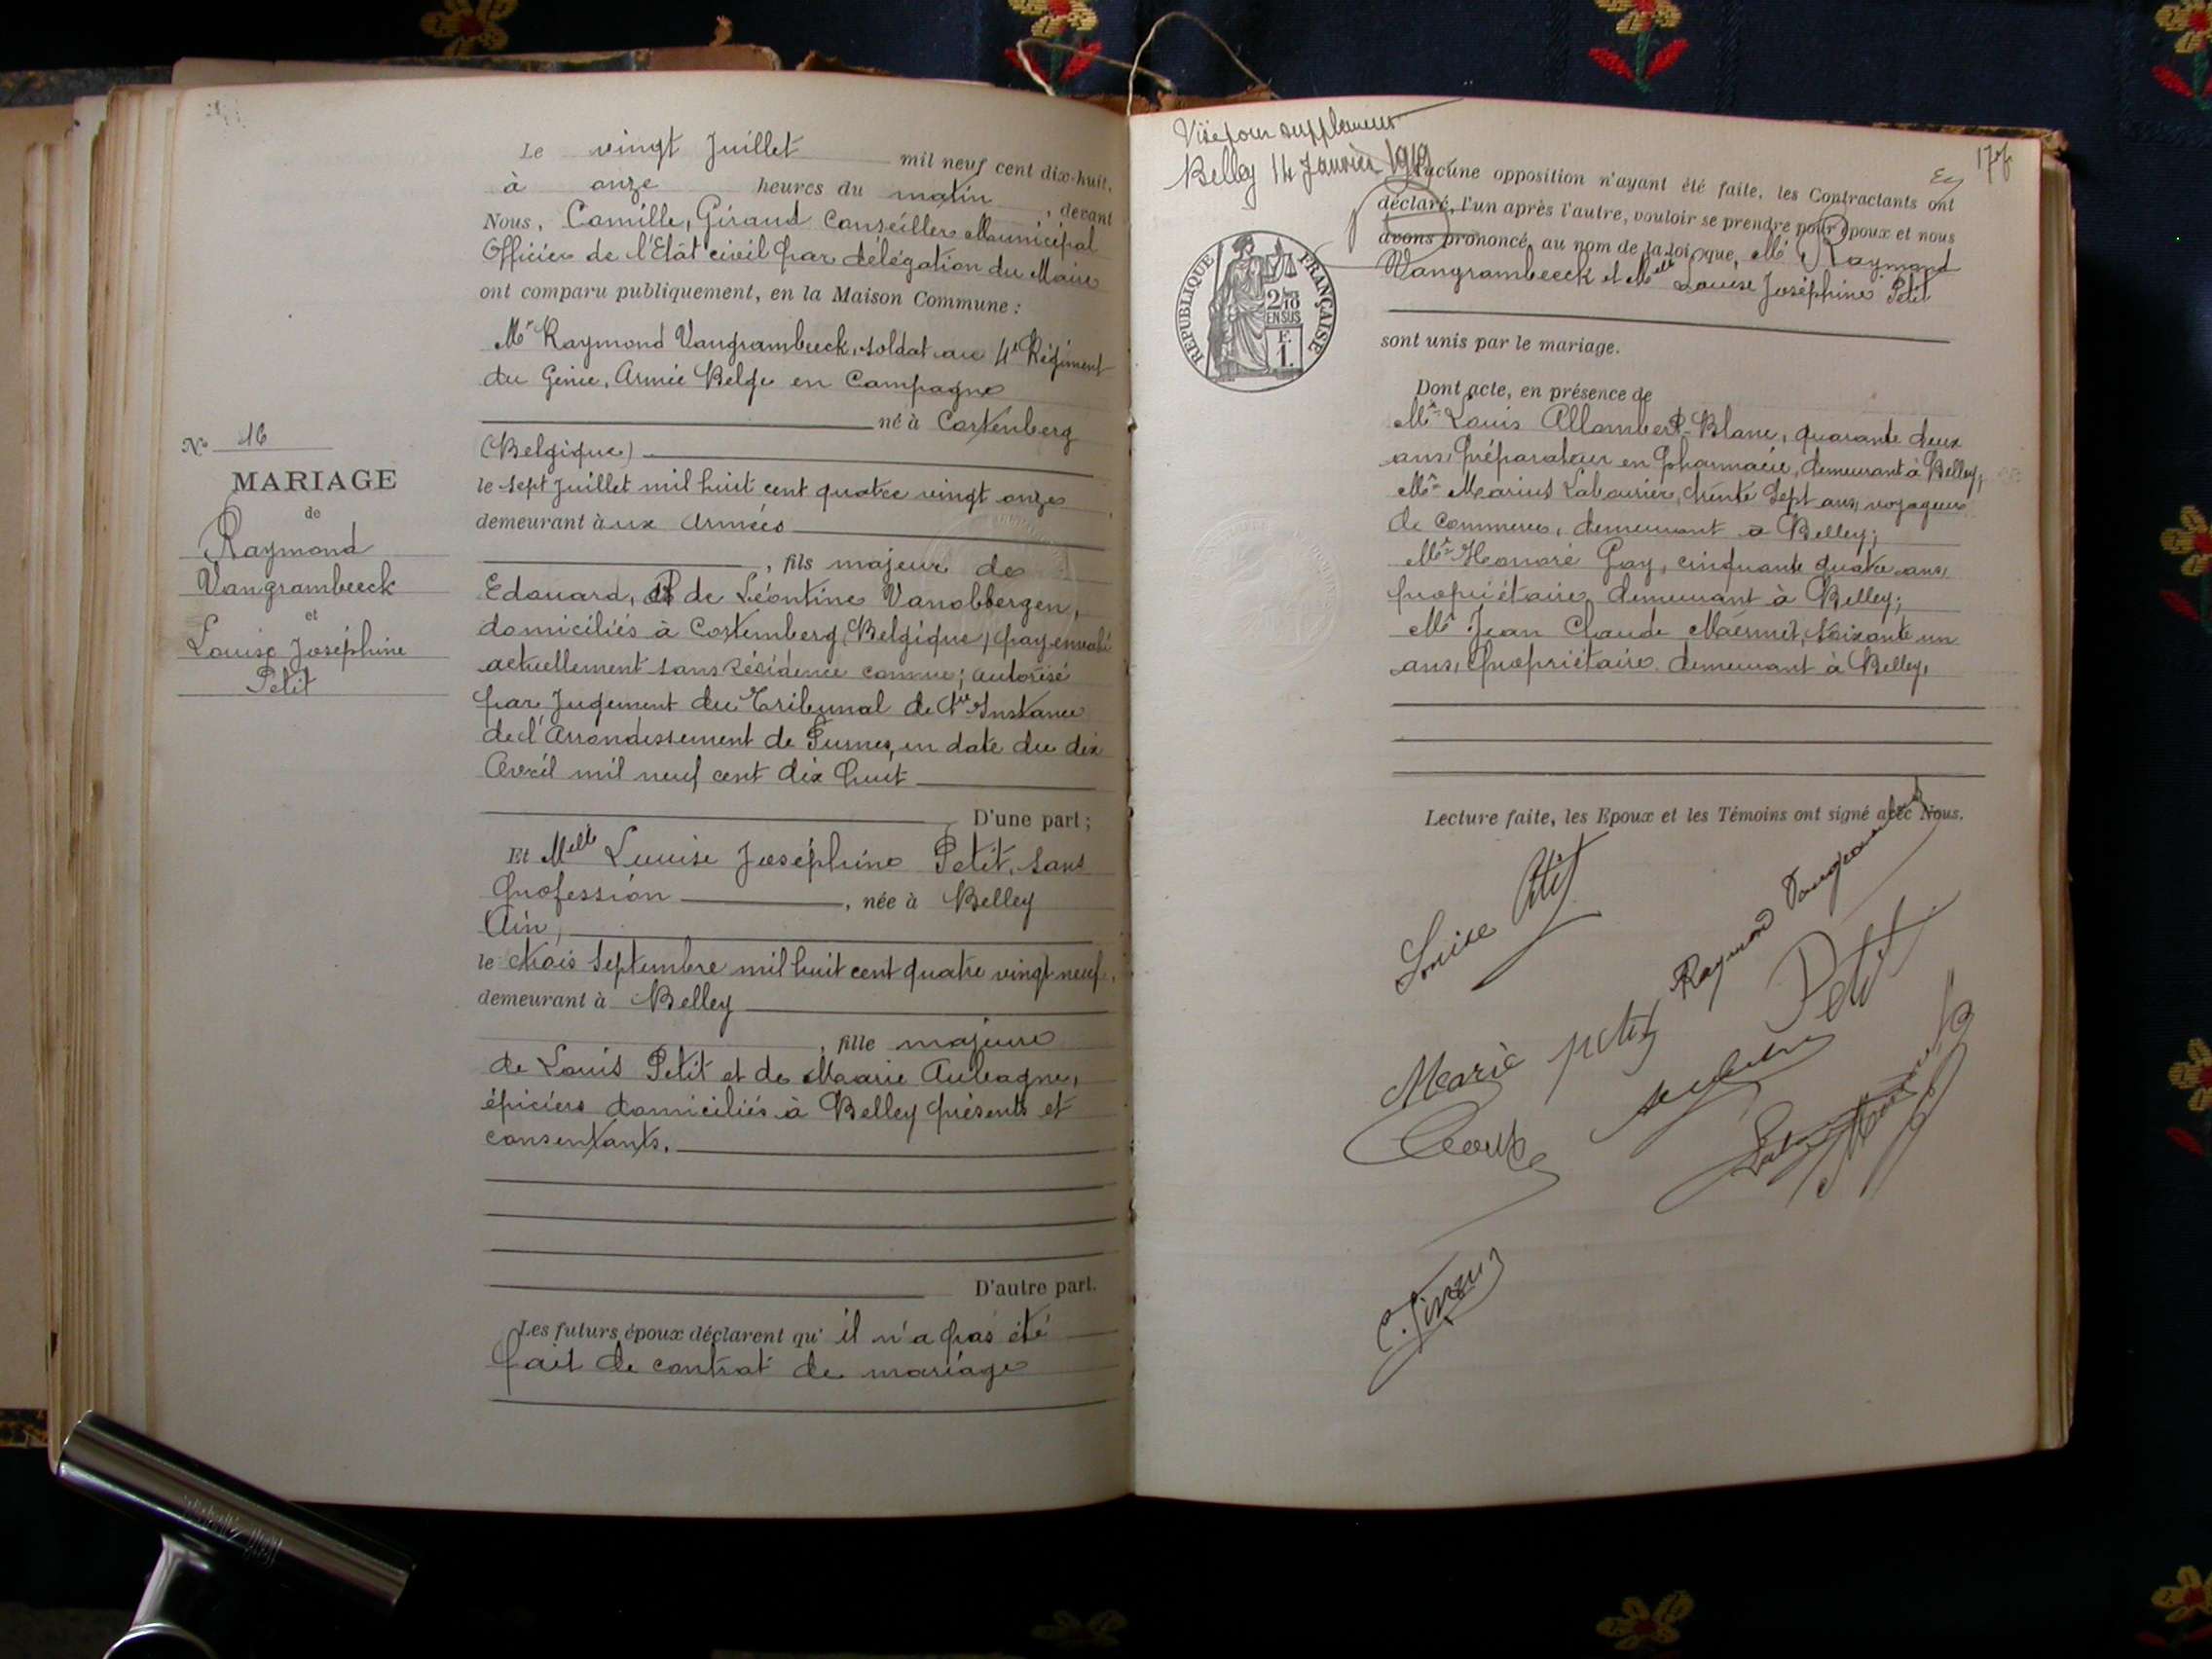 Le vingt Juillet mil neuf cent dix-huit,
à onze heures du matin, devant
Nous, Camille, Giraud Conseiller Municipal
Officier de l'Etât civil par délégation du Maire
ont comparu publiquement, en la Maison Commune :
Mr Raymond Vangrambeeck, soldat au 4e Régiment
du Génie, Armée Belge en Campagne
né à Cortenberg
(Belgique)
le sept Juillet mil huit cent quatre vingt onze
demeurant aux Armées
, fils majeur de
Edouard, et de Léontine Vanobbergen,
domiciliés à Cortemberg (Belgique) pays envahi
actuellement sans résidence connue; autorisé
par Jugement du Tribunal de 1re Instance
de l'Arrondissement de Furnes, en date du dix
Avril mil neuf cent dix huit
D'une part ;
Et Melle Louise Joséphine Petit, sans
profession, née à Belley
Ain,
le trois Septembre mil huit cent quatre vingt neuf,
demeurant à Belley
, fille majeure
de Louis Petit et de Marie Aubagne,
épiciers domiciliés à Belley présents et
consentants.
D'autre part.
Les futurs époux déclarent qu' il n'a pas été
fait de contrat de mariage
No 16
MARIAGE
de
Raymond
Vangrambeeck
et
Louise Joséphine
Petit
Visé pour supplément
Belley 14 Janvier 1919
177
Aucune opposition n'ayant été faite, les Contractants ont
déclaré, l'un après l'autre, vouloir se prendre pour époux et nous
avons prononcé, au nom de la loi, que, Mr Raymond
Vangrambeeck et Melle Louise Joséphine Petit
sont unis par le mariage.
REPUBLIQUE FRANÇAISE
2/10
EN SUS
F.
1.
Dont acte, en présence de
Mr Louis Allombert-Blanc, quarante deux
ans, Préparateur en pharmacie, demeurant à Belley;
Mr Marius Labourier, trente sept ans, voyageur
de commerce, demeurant à Belley;
Mr Honoré Gay, cinquante quatre ans,
propriétaire demeurant à Belley;
Mr Jean Claude Mermet, soixante un
ans, propriétaire demeurant à Belley,
Lecture faite, les Epoux et les Témoins ont signé avec Nous.
Louise Petit
Raymond Vangrambeeck
Marie petit
Petit
C. Giraud